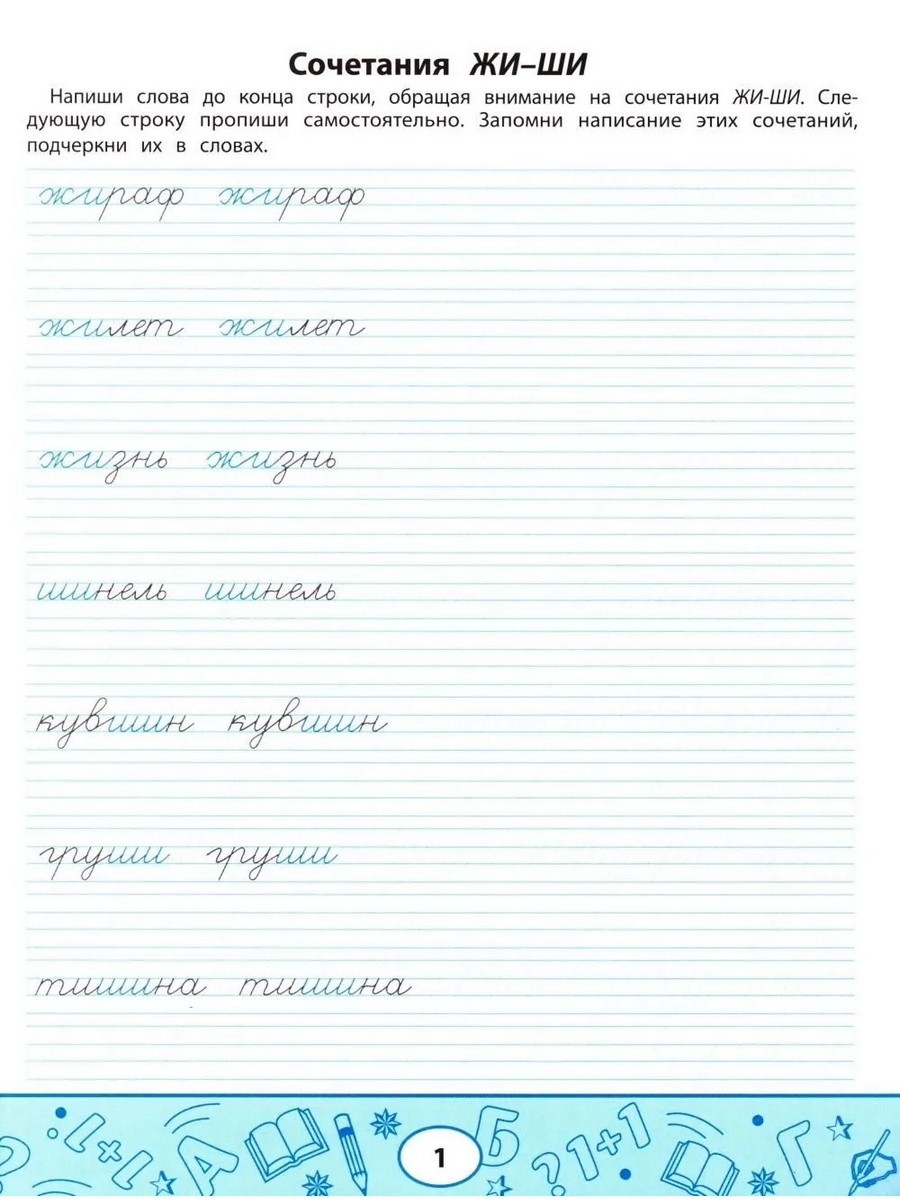 Сочетания ЖИ–ШИ
Напиши слова до конца строки, обращая внимание на сочетания ЖИ-ШИ. Сле-
дующую строку пропиши самостоятельно. Запомни написание этих сочетаний,
подчеркни их в словах.
жираф жираф
жилет жилет
жизнь жизнь
шинель шинель
кувшин кувшин
груши груши
тишина тишина
1+1 А Б ?1+1 Г
1